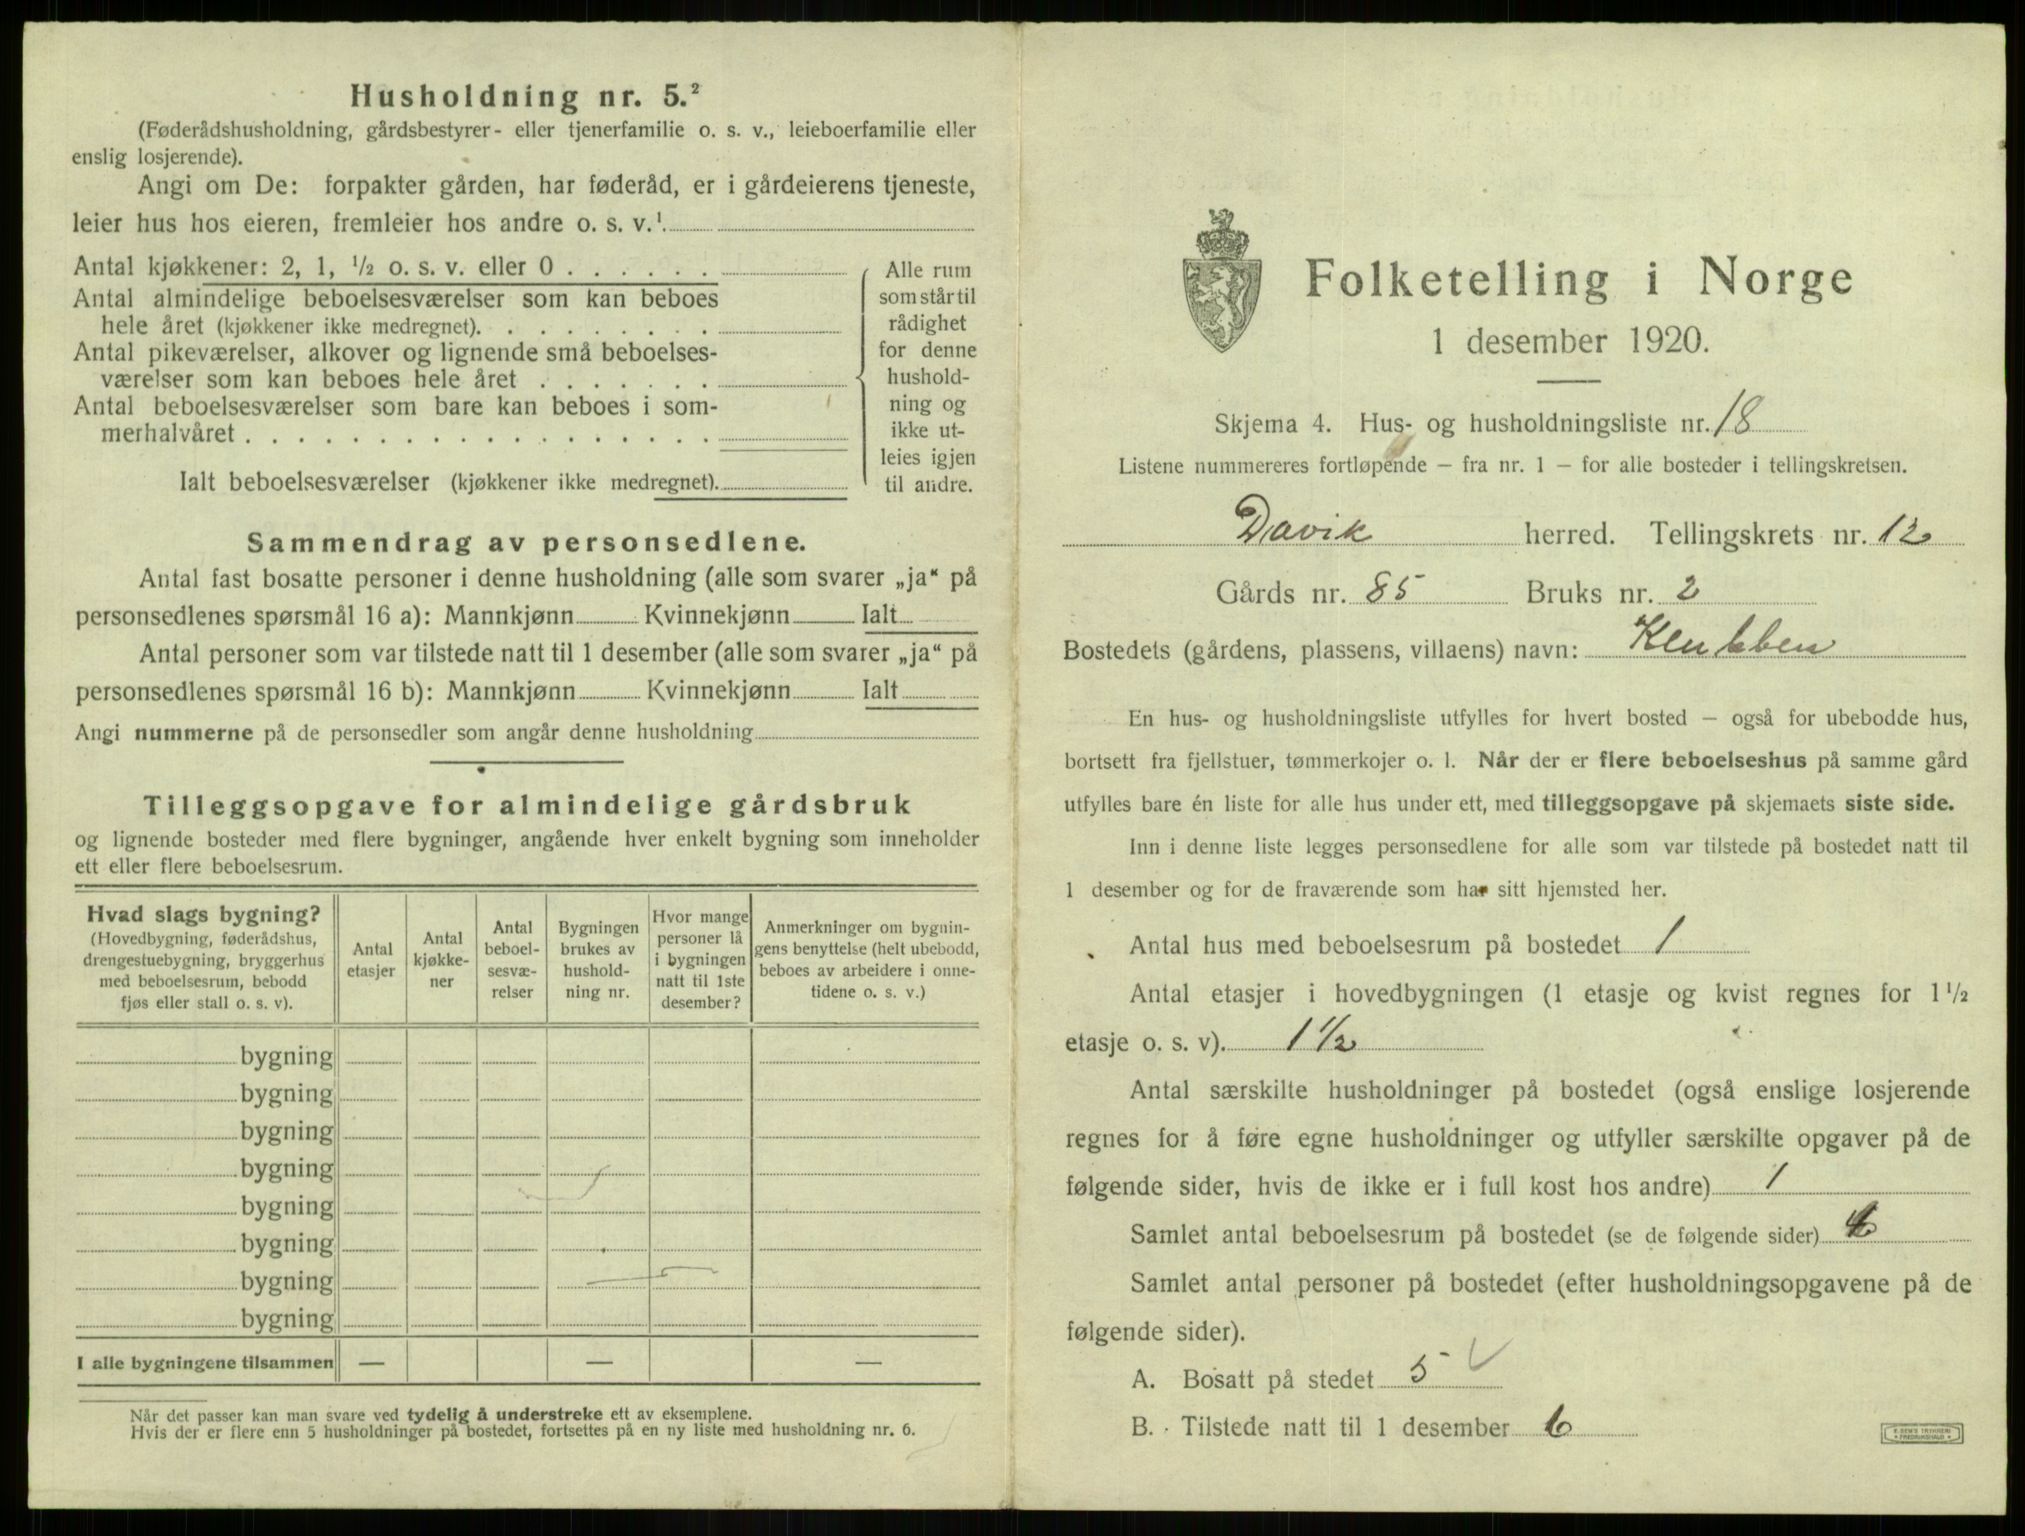 Husholdning nr. 5.²
(Føderådshusholdning, gårdsbestyrer- eller tjenerfamilie o. s. v., leieboerfamilie eller
enslig losjerende).
Angi om De: forpakter gården, har føderåd, er i gårdeierens tjeneste,
leier hus hos eieren, fremleier hos andre o. s. v.¹.
Antal kjøkkener: 2, 1, ½ o. s. v. eller 0
Antal almindelige beboelsesværelser som kan beboes
hele året (kjøkkener ikke medregnet).
Antal pikeværelser, alkover og lignende små beboelses-
værelser som kan beboes hele året
Antal beboelsesværelser som bare kan beboes i som-
merhalvåret
Ialt beboelsesværelser (kjøkkener ikke medregnet).
Alle rum
som står til
rådighet
for denne
hushold-
ning og
ikke ut-
leies igjen
til andre.
Sammendrag av personsedlene.
Antal fast bosatte personer i denne husholdning (alle som svarer „ja“ på
personsedlenes spørsmål 16 a): Mannkjønn Kvinnekjønn Ialt
Antal personer som var tilstede natt til 1 desember (alle som svarer „ja“ på
personsedlenes spørsmål 16 b): Mannkjønn Kvinnekjønn Ialt
Angi nummerne på de personsedler som angår denne husholdning
Tilleggsopgave for almindelige gårdsbruk
og lignende bosteder med flere bygninger, angående hver enkelt bygning som inneholder
ett eller flere beboelsesrum.
Hvad slags bygning?
(Hovedbygning, føderådshus,
drengestuebygning, bryggerhus
med beboelsesrum, bebodd
fjøs eller stall o. s. v).
Antal
etasjer
Antal
kjøkke-
ner
Antal
beboel-
sesvæ-
relser
Bygningen
brukes av
hushold-
ning nr.
Hvor mange
personer lå
i bygningen
natt til 1ste
desember?
Anmerkninger om bygnin-
gens benyttelse (helt ubebodd,
beboes av arbeidere i onne-
tidene o. s. v.)
bygning
bygning
bygning
bygning
bygning
bygning
bygning
bygning
I alle bygningene tilsammen — — —
Når det passer kan man svare ved tydelig å understreke ett av eksemplene.
Hvis der er flere enn 5 husholdninger på bostedet, fortsettes på en ny liste med husholdning nr. 6.
Folketelling i Norge
1 desember 1920.
Skjema 4. Hus- og husholdningsliste nr. 18
Listene nummereres fortløpende – fra nr. 1 – for alle bosteder i tellingskretsen.
Davik herred. Tellingskrets nr. 12
Gårds nr. 85 Bruks nr. 2
Bostedets (gårdens, plassens, villaens) navn: Klubben
En hus- og husholdningsliste utfylles for hvert bosted – også for ubebodde hus,
bortsett fra fjellstuer, tømmerkojer o. l. Når der er flere beboelseshus på samme gård
utfylles bare én liste for alle hus under ett, med tilleggsopgave på skjemaets siste side.
Inn i denne liste legges personsedlene for alle som var tilstede på bostedet natt til
1 desember og for de fraværende som har sitt hjemsted her.
Antal hus med beboelsesrum på bostedet 1
Antal etasjer i hovedbygningen (1 etasje og kvist regnes for 1½
etasje o. s. v). 1½
Antal særskilte husholdninger på bostedet (også enslige losjerende
regnes for å føre egne husholdninger og utfyller særskilte opgaver på de
følgende sider, hvis de ikke er i full kost hos andre) 1
Samlet antal beboelsesrum på bostedet (se de følgende sider)
Samlet antal personer på bostedet (efter husholdningsopgavene på de
følgende sider).
A. Bosatt på stedet 5
B. Tilstede natt til 1 desember 6